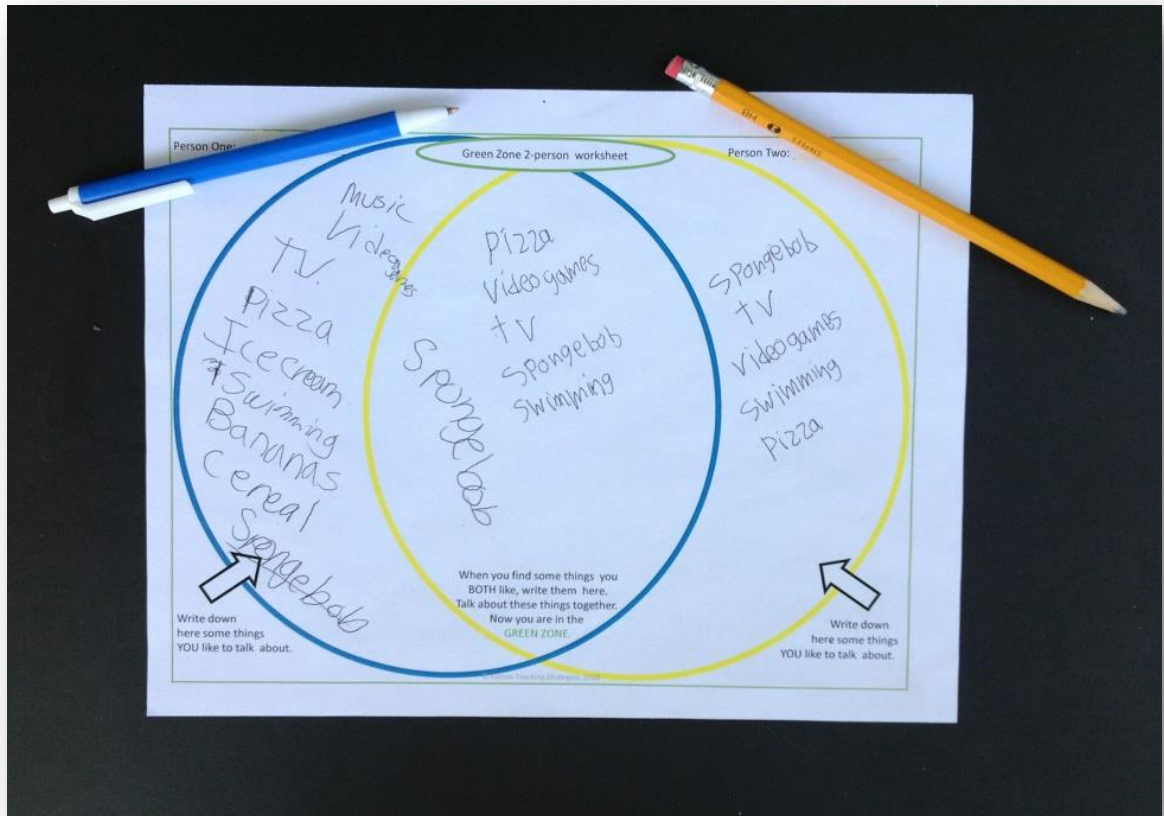 Person One:
Green Zone 2-person worksheet
Person Two:
Music
Videogames
TV.
Pizza
Icecream
Swimming
Bananas
Cereal
Spongebob
Pizza
Videogames
tV
Spongebob
Swimming
Spongebob
Spongebob
tV
videogames
Swimming
Pizza
Write down
here some things
YOU like to talk about.
When you find some things you
BOTH like, write them here.
Talk about these things together.
Now you are in the
GREEN ZONE.
Write down
here some things
YOU like to talk about.
Autism Teaching Strategies,